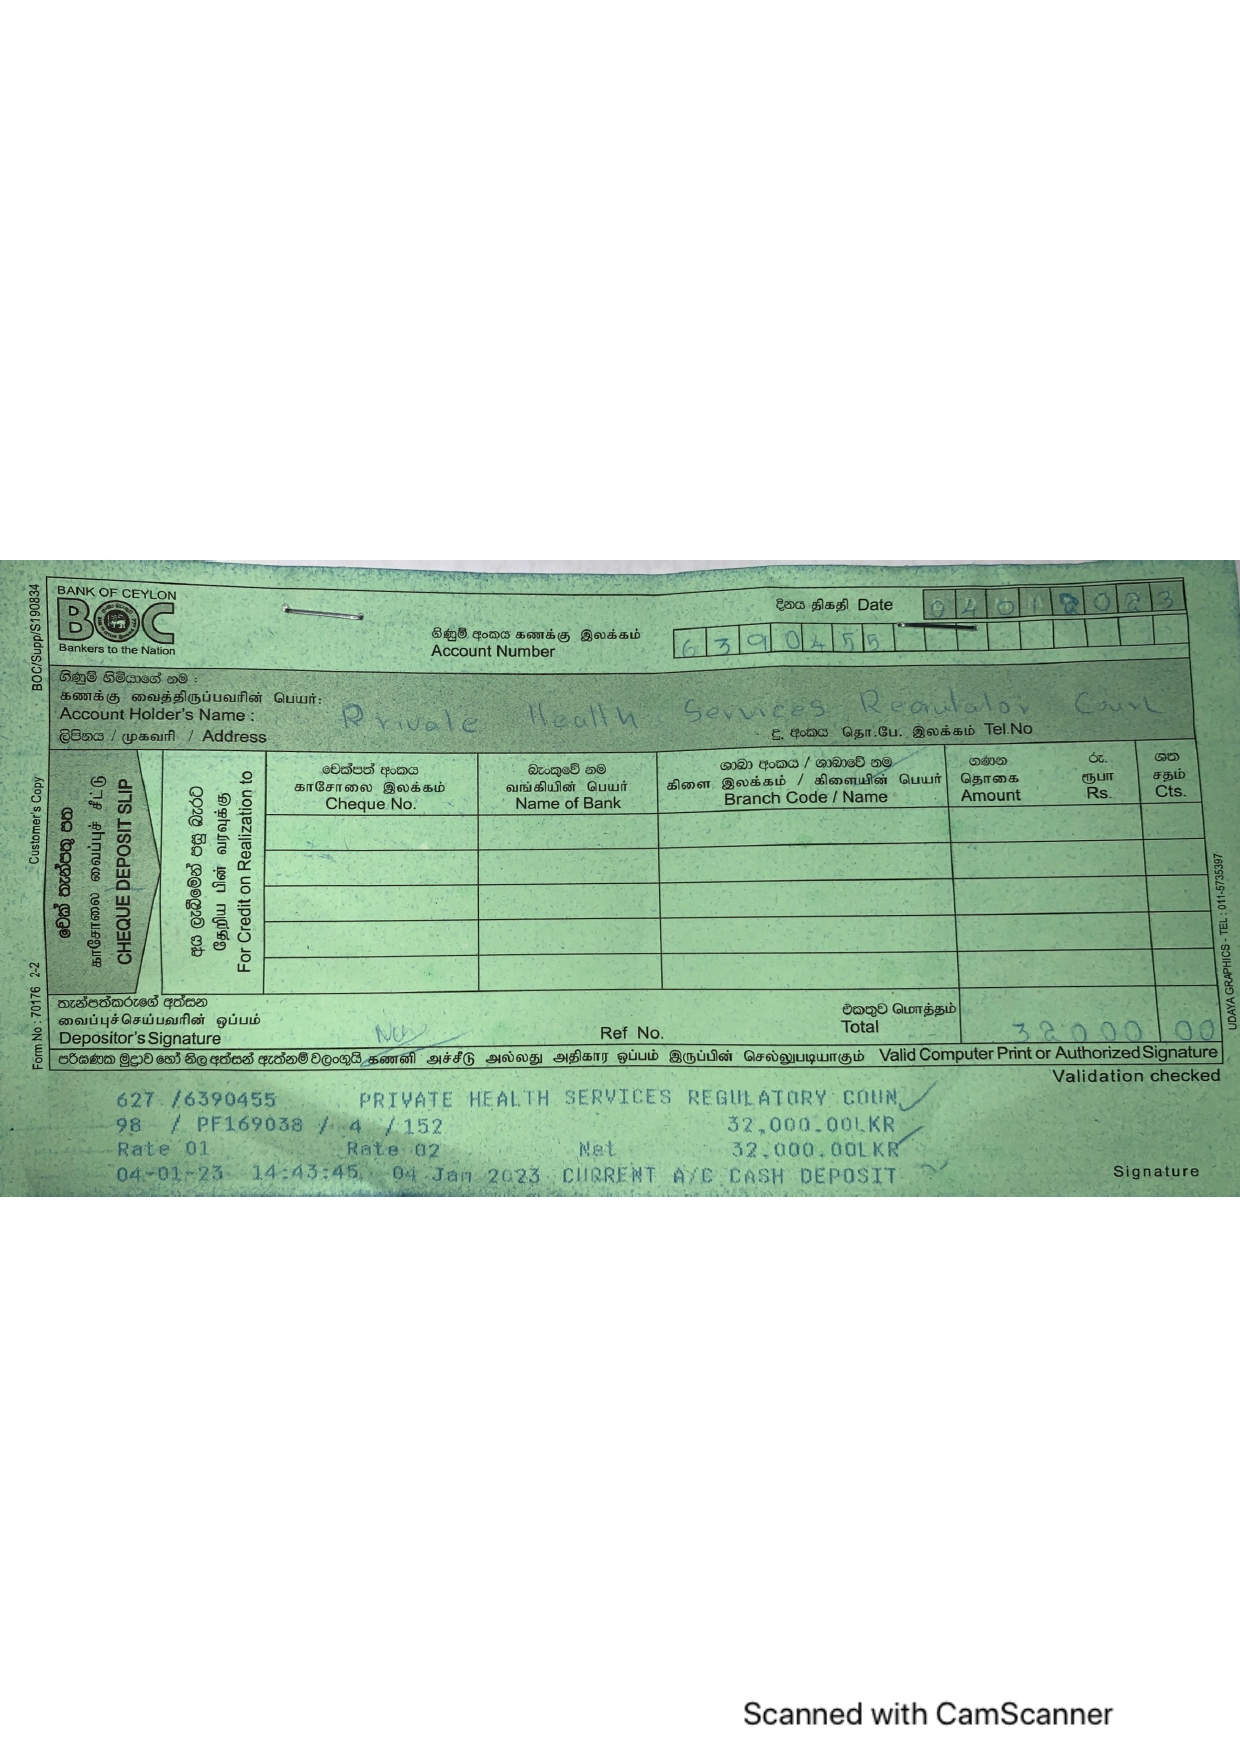 BANK OF CEYLON
BOC
Bankers to the Nation
දිනය திகதி Date 04012023
ගිණුම් අංකය கணக்கு இலக்கம்
Account Number 6390455
ගිණුම් හිමියාගේ නම :
கணக்கு வைத்திருப்பவரின் பெயர்:
Account Holder's Name : Private Health Services Regulator Coun
ලිපිනය / முகவரி / Address
දු. අංකය தொ.பே. இலக்கம் Tel.No
චෙක් තැන්පතු පත
காசோலை வைப்புச் சீட்டு
CHEQUE DEPOSIT SLIP
අය ලැබීමෙන් පසු බැරට
தேறிய பின் வரவுக்கு
For Credit on Realization to
චෙක්පත් අංකය
காசோலை இலக்கம்
Cheque No.
බැංකුවේ නම
வங்கியின் பெயர்
Name of Bank
ශාඛා අංකය / ශාඛාවේ නම
கிளை இலக்கம் / கிளையின் பெயர்
Branch Code / Name
ගණන
தொகை
Amount
රු.
ரூபா
Rs.
ශත
சதம்
Cts.
තැන්පත්කරුගේ අත්සන
வைப்புச்செய்பவரின் ஒப்பம்
Depositor's Signature
Ref No.
එකතුව மொத்தம்
Total 32000 00
පරිගණක මුද්‍රාව හෝ නිල අත්සන් ඇත්නම් වලංගුයි கணனி அச்சீடு அல்லது அதிகார ஒப்பம் இருப்பின் செல்லுபடியாகும் Valid Computer Print or Authorized Signature
Validation checked
627 /6390455 PRIVATE HEALTH SERVICES REGULATORY COUN
98 / PF169038 / 4 /152 32,000.00LKR
Rate 01 Rate 02 Net 32,000.00LKR
04-01-23 14:43:45 04 Jan 2023 CURRENT A/C CASH DEPOSIT
Signature
BOC/Supp/S190834
Customer's Copy
Form No : 70176 2-2
UDAYA GRAPHICS - TEL : 011-5735397
Scanned with CamScanner